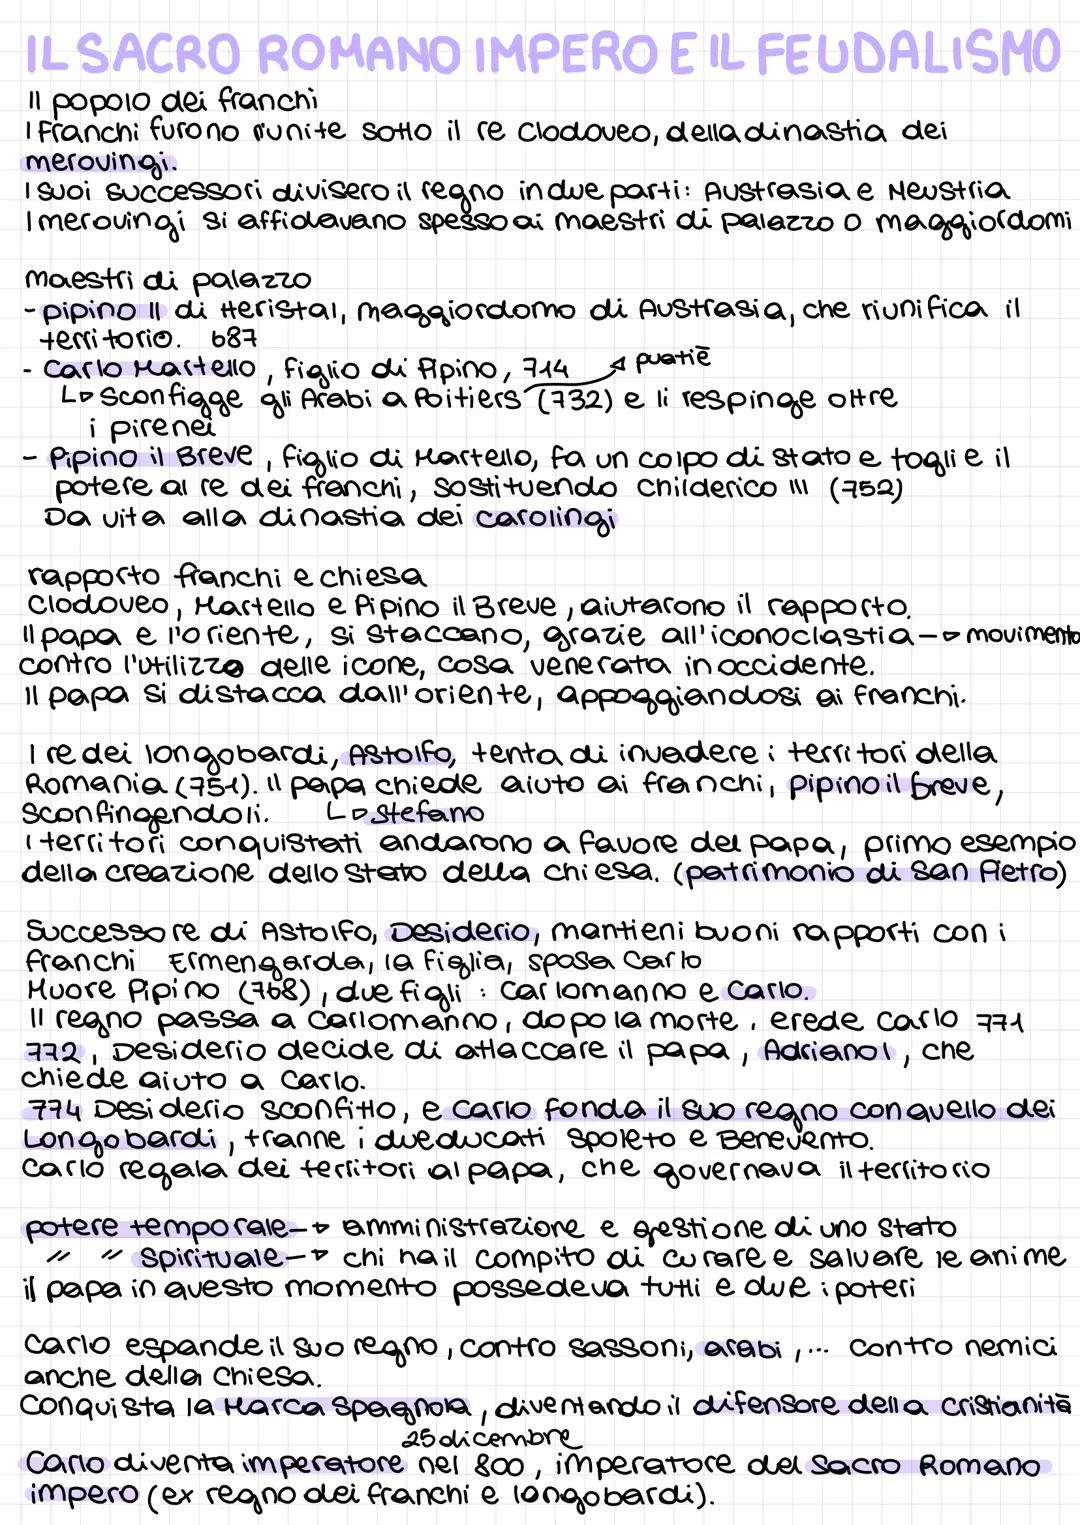 IL SACRO ROMANO IMPERO E IL FEUDALISMO
Il popolo dei franchi
I Franchi furono riunite sotto il re Clodoveo, della dinastia dei
merovingi.
I suoi successori divisero il regno in due parti: Austrasia e Neustria
I merovingi si affidavano spesso ai maestri di palazzo o maggiordomi
maestri di palazzo
- pipino II di Heristal, maggiordomo di Austrasia, che riunifica il
territorio. 687
- Carlo Martello, figlio di Pipino, 714 puatiē
↳ Sconfigge gli Arabi a Poitiers (732) e li respinge oltre
i pirenei
- Pipino il Breve, figlio di Martello, fa un colpo di stato e toglie il
potere al re dei franchi, sostituendo Childerico III (752)
Da vita alla dinastia dei carolingi
rapporto franchi e chiesa
Clodoveo, Martello e Pipino il Breve, aiutarono il rapporto.
Il papa e l'oriente, si staccano, grazie all'iconoclastia → movimento
contro l'utilizzo delle icone, cosa venerata in occidente.
Il papa si distacca dall'oriente, appoggiandosi ai franchi.
I re dei longobardi, Astolfo, tenta di invadere i territori della
Romania (751). Il papa chiede aiuto ai franchi, pipino il breve,
sconfingendoli. ↳ Stefano
I territori conquistati andarono a favore del papa, primo esempio
della creazione dello Stato della chiesa. (patrimonio di San Pietro)
Successore di Astolfo, Desiderio, mantieni buoni rapporti con i
franchi Ermengarda, la figlia, sposa Carlo
Muore Pipino (768), due figli : Carlomanno e Carlo.
Il regno passa a Carlomanno, dopo la morte, erede Carlo 771
772, Desiderio decide di attaccare il papa, Adriano I, che
chiede aiuto a Carlo.
774 Desiderio sconfitto, e Carlo fonda il suo regno con quello dei
Longobardi, tranne i due ducati Spoleto e Benevento.
Carlo regala dei territori al papa, che governava il territorio
potere temporale → amministrazione e gestione di uno stato
" " Spirituale → chi ha il compito di curare e salvare le anime
il papa in questo momento possedeva tutti e due i poteri
Carlo espande il suo regno, contro sassoni, arabi, ... contro nemici
anche della Chiesa.
Conquista la Marca Spagnola, diventando il difensore della cristianità
25 dicembre
Carlo diventa imperatore nel 800, imperatore del Sacro Romano
impero (ex regno dei franchi e longobardi).